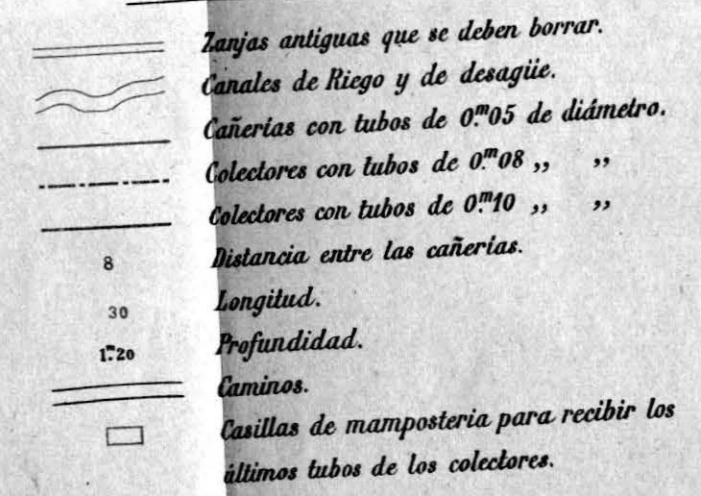 Zanjas antiguas que se deben borrar.
Canales de Riego y de desagüe.
Cañerías con tubos de 0.m05 de diámetro.
Colectores con tubos de 0.m08 ,, ,,
Colectores con tubos de 0.m10 ,, ,,
8 Distancia entre las cañerías.
30 Longitud.
1.m20 Profundidad.
Caminos.
Casillas de mamposteria para recibir los
últimos tubos de los colectores.